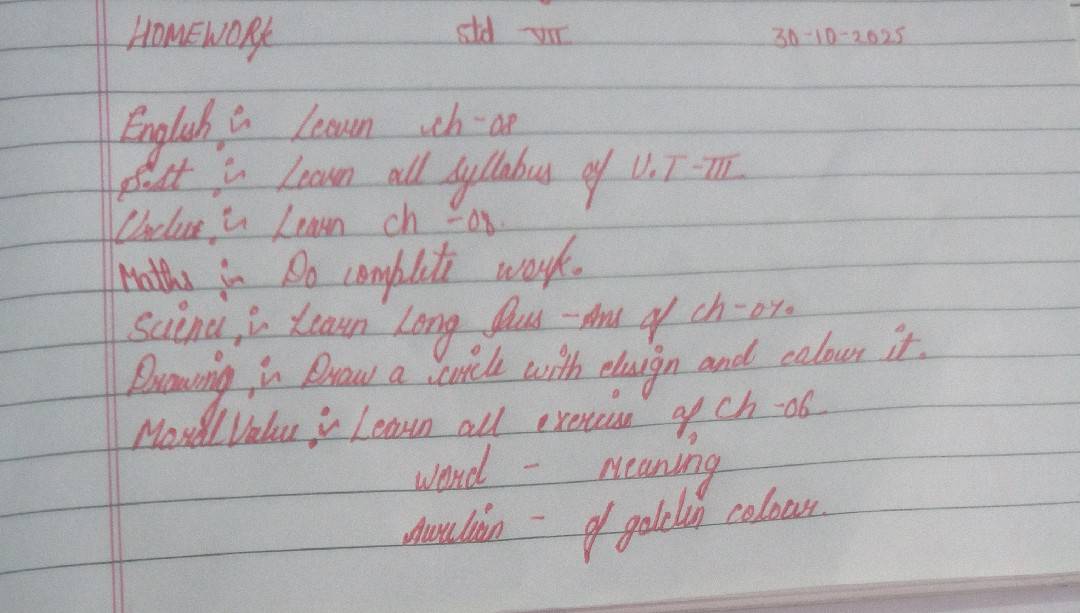 HOMEWORK std VII 30-10-2025
English :- Learn ch-08
S.St :- Learn all syllabus of U.T-III
:- Learn ch -08.
Maths :- Do complete work.
Science :- Learn Long Qus -Ans of ch-07.
Drawing :- Draw a circle with design and colour it.
Moral Value :- Learn all exercise of Ch -06
Word - Meaning
Aurelian - of golden colour.